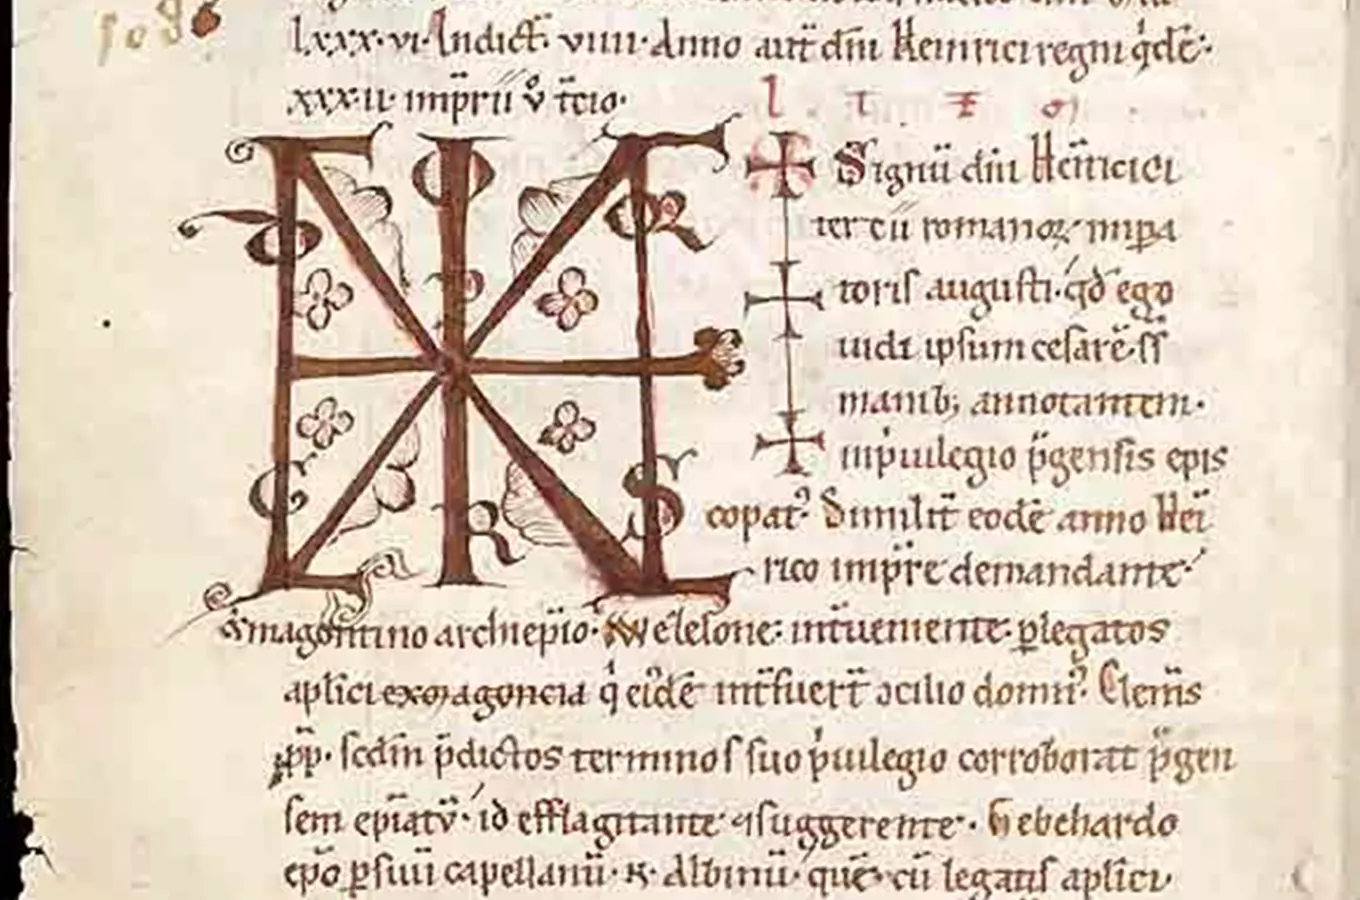 1086
lxxx·vi· Indict̄· viiii· Anno aut̄ dn̄i Heinrici regni q̇dē·
xxx·ii· imp̄rii v̊ t̄cio·
l . τ
Signū dn̄i Hein̄rici
terciī romanoꝝ imꝑa
toris augusti· qd̄ ego
uidi ipsum cesarē· ss̄
manib; annotantem·
in p̍uilegio p̄gensis epis
copat᾽ Similit̄ eodē anno Hei
rico imp̄re demandante·
& magontino archiep̄io· Welesone· int̄ueniente· ꝑ legatos
apl̄ici ex Magoncia q̍ eidē int̄fuer̄t ɔcilio domn᾽ Clem̄s
pp̄· scdm̄ p̄dictos terminos suo p̍uilegio corroborat p̄gen
sem ep̄iatū· id efflagitante ⁊ suggerente· Gebehardo
ep̄o ꝑ suū capellanū· K· Albinū· quē cū legatis apl̄ici